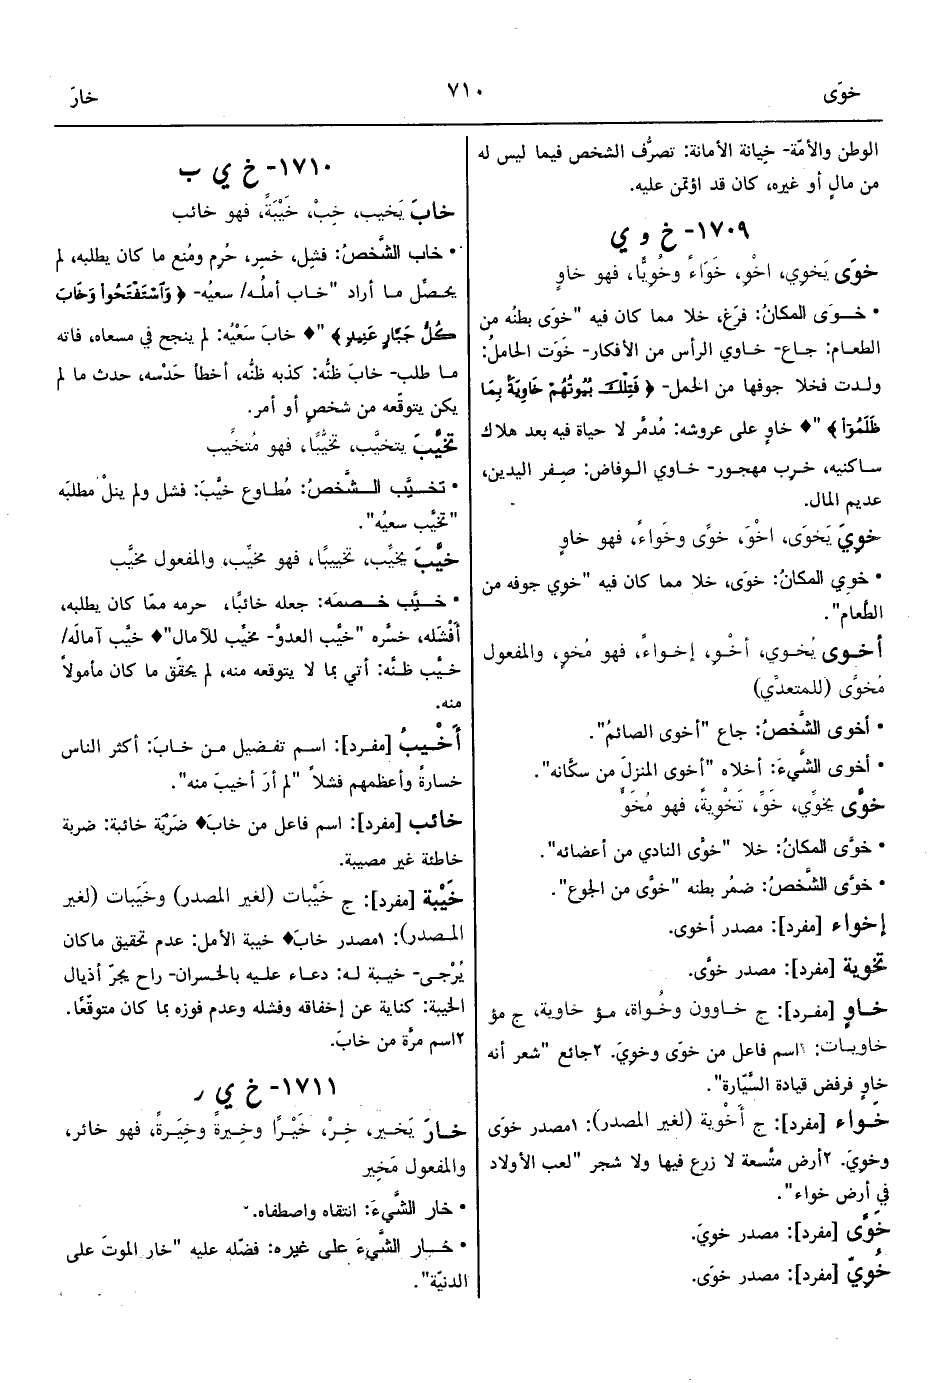 خوَى
٧١٠
خارَ
الوطن والأمّة- خِيانة الأمانة: تصرُّف الشخص فيما ليس له
من مالٍ أو غيره، كان قد اؤتمن عليه.
١٧٠٩- خ و ي
خوَى يَخوِي، اخْوِ، خَوَاءً وخُويًّا، فهو خاوٍ
• خــوَى المكانُ: فرَغ، خلا مما كان فيه "خوَى بطنه من
الطعام: جـاع- خاوي الرأس من الأفكار- خَوَت الحاملُ:
ولـدت فخلا جوفها من الحمل- ﴿ فَتِلْكَ بُيُوتُهُمْ خَاوِيَةً بِمَا
ظَلَمُوٓا۟ ﴾ "♦ خاوٍ على عروشه: مُدمَّر لا حياة فيه بعد هلاك
ساكنيه، خرب مهجور- خاوي الوِفاض: صِفر اليدين،
عديم المال.
خوِيَ يَخوَى، اخْوَ، خوًى وخَواءً، فهو خاوٍ
• خوِي المكانُ: خوَى، خلا مما كان فيه "خوِي جوفه من
الطَّعام".
أخـوى يُخوِي، أَخْوِ، إخواءً، فهو مُخوٍ، والمفعول
مُخوًى (للمتعدِّي)
• أخوى الشَّخصُ: جاع "أخوى الصائمُ".
• أخوى الشَّيءَ: أخلاه "أخوى المنزلَ من سكَّانه".
خوَّى يخوِّي، خَوِّ، تَخْوِيةً، فهو مُخَوٍّ
• خوَّى المكانُ: خلا "خوَّى النادي من أعضائه".
• خوَّى الشَّخصُ: ضمُر بطنه "خوَّى من الجوع".
إخواء [مفرد]: مصدر أخوى.
تخوية [مفرد]: مصدر خوَّى.
خـاوٍ [مفـرد]: ج خـاوون وخُواة، مـؤ خاوية، ج مؤ
خاويـات: ١اسم فاعل من خوَى وخوِيَ. ٢جائع "شعر أنه
خاوٍ فرفض قيادة السَّيّارة".
خَـواء [مفرد]: ج أَخْوِية (لغير المصدر): ١مصدر خوَى
وخوِيَ. ٢أرض متَّسعة لا زرع فيها ولا شجر "لعب الأولاد
في أرض خواء".
خَوًى [مفرد]: مصدر خوِيَ.
خُوِيّ [مفرد]: مصدر خوَى.
١٧١٠- خ ي ب
خابَ يَخيب، خِبْ، خَيْبَةً، فهو خائب
• خاب الشَّخصُ: فشِل، خسِر، حُرم ومُنع ما كان يطلبه، لم
يحصِّل مـا أراد "خـاب أملُـه/ سعيُه- ﴿ وَٱسْتَفْتَحُوا۟ وَخَابَ
كُلُّ جَبَّارٍ عَنِيدٍ ﴾ "♦ خابَ سَعْيُه: لم ينجح في مسعاه، فاته
مـا طلب- خابَ ظنُّه: كذبه ظنُّه، أخطأ حَدْسه، حدث ما لم
يكن يتوقَّعه من شخصٍ أو أمر.
تخيَّبَ يتخيَّب، تخيُّبًا، فهو مُتخيِّب
• تخـيَّب الـشَّخصُ: مُطاوع خيَّبَ: فشل ولم ينلْ مطلبَه
"تخيَّب سعيُه".
خيَّبَ يخيِّب، تخييبًا، فهو مخيِّب، والمفعول مخيَّب
• خــيَّب خــصمَه: جعله خائبًا، حرمه ممّا كان يطلبه،
أَفْشَله، خسَّره "خيَّب العدوَّ- مخيِّب للآمال"♦ خيَّب آمالَه/
خيَّب ظـنَّه: أتي بما لا يتوقعه منه، لم يحقّق ما كان مأمولاً
منه.
أَخْيبُ [مفـرد]: اسـم تفـضيل مـن خـابَ: أكثر الناس
خسارةً وأعظمهم فشلاً "لم أرَ أخيبَ منه".
خائب [مفرد]: اسم فاعل من خابَ♦ ضَرْبَة خائبة: ضربة
خاطئة غير مصيبة.
خَيْبة [مفرد]: ج خَيْبات (لغير المصدر) وخَيَبات (لغير
المـصدر): ١مصدر خابَ♦ خيبة الأمل: عدم تحقيق ماكان
يُرْجـى- خيـبة لـه: دعـاء علـيه بالخسران- راح يجرّ أذيال
الخيبة: كناية عن إخفاقه وفشله وعدم فوزه بما كان متوقّعًا.
٢اسم مرَّة من خابَ.
١٧١١- خ ي ر
خـارَ يَخـير، خِـرْ، خَيْـرًا وخِيـرةً وخِيَـرةً، فهو خائر،
والمفعول مَخِير
• خار الشَّيءَ: انتقاه واصطفاه.
• خـار الشَّيءَ على غيره: فضّله عليه "خار الموتَ على
الدنيّة".